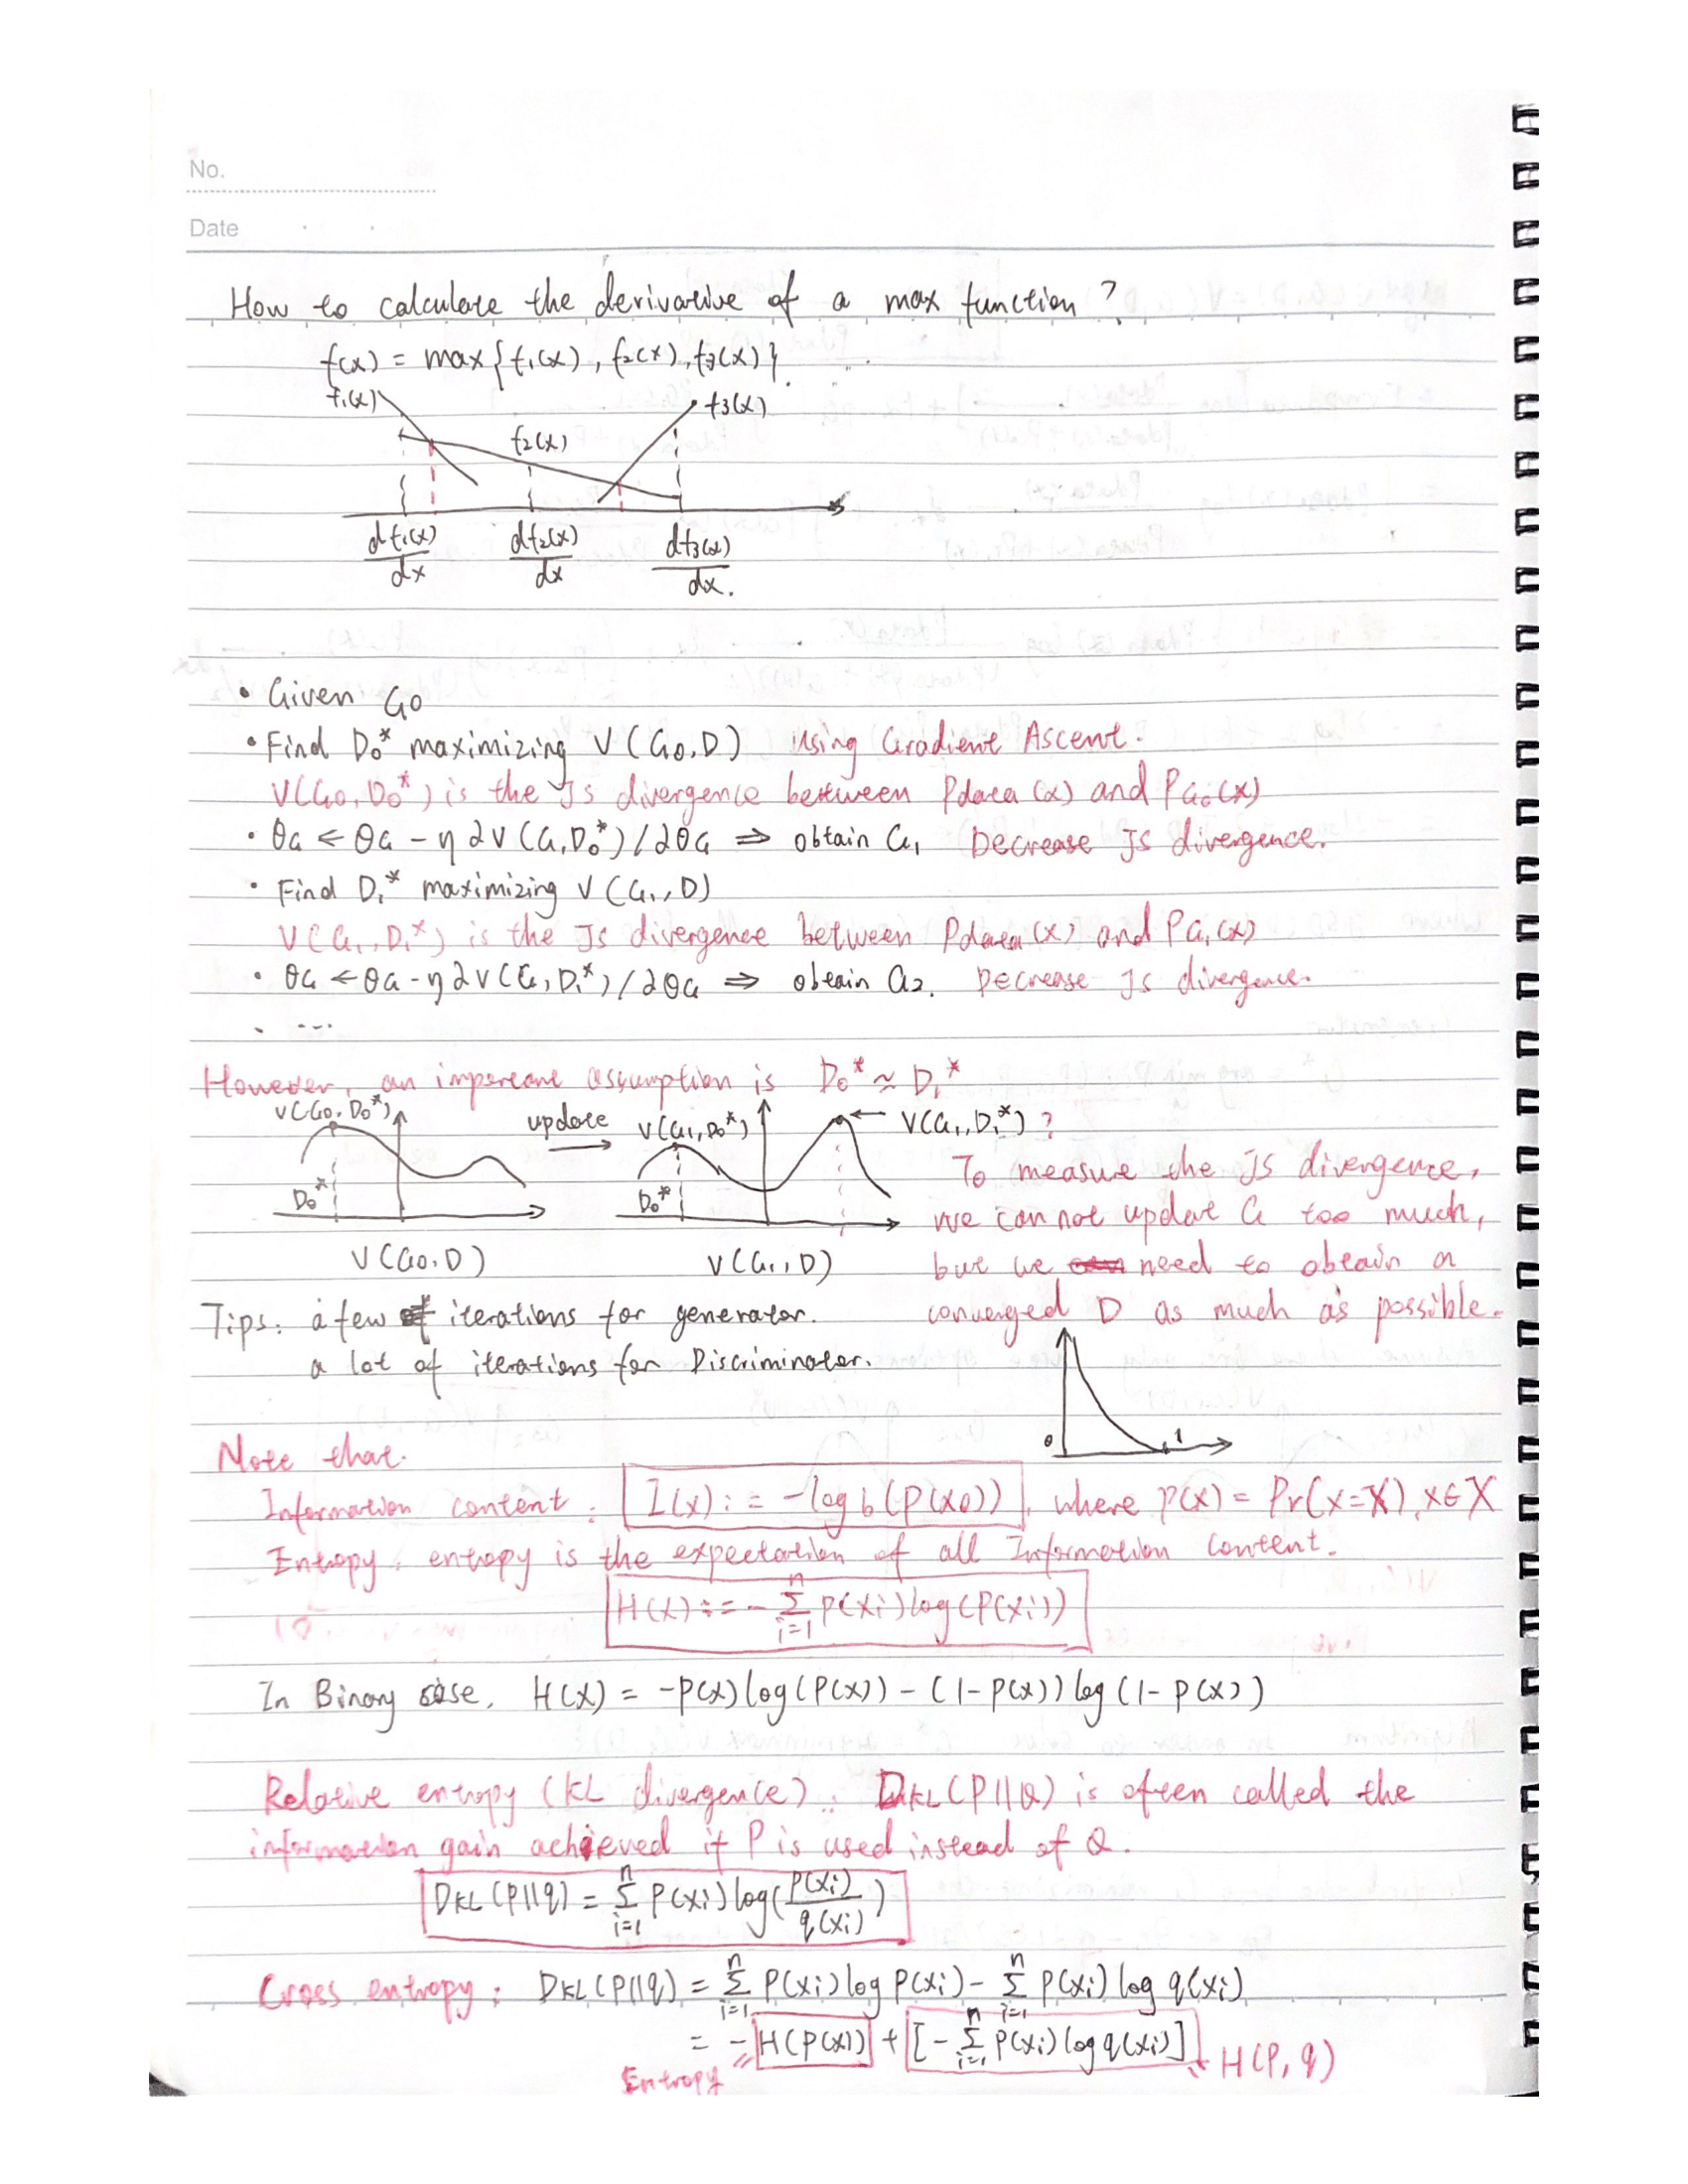 No.
Date
How to calculate the derivative of a max function?
f(x) = max{f1(x), f2(x), f3(x)}.
f1(x) f3(x)
f2(x)
df1(x)/dx df2(x)/dx df3(x)/dx.
• Given G0
• Find D0* maximizing V(G0, D) Using Gradient Ascent.
V(G0, D0*) is the JS divergence between Pdata(x) and PG0(x)
• θG ← θG - η ∂V(G, D0*)/∂θG ⇒ obtain G1 Decrease JS divergence.
• Find D1* maximizing V(G1, D)
V(G1, D1*) is the JS divergence between Pdata(x) and PG1(x)
• θG ← θG - η ∂V(G, D1*)/∂θG ⇒ obtain G2. Decrease JS divergence.
• ...
However, an important assumption is D0* ≈ D1*
V(G0, D0*) update V(G1, D0*) ← V(G1, D1*) ?
D0* D0*
V(G0, D) V(G1, D)
To measure the JS divergence,
we can not update G too much,
but we need to obtain a
converged D as much as possible.
Tips: a few iterations for generator.
a lot of iterations for Discriminator.
0 1
Note that.
Information content: I(x) := -log b(P(x0)), where p(x) = Pr(x=X), x∈X
Entropy: entropy is the expectation of all Information content.
H(X) := -∑_{i=1}^{n} p(xi) log(P(xi))
In Binary case, H(X) = -p(x) log(P(x)) - (1-p(x)) log(1-p(x))
Relative entropy (KL divergence): DKL(P||Q) is often called the
information gain achieved if P is used instead of Q.
DKL(P||q) = ∑_{i=1}^{n} P(xi) log(P(xi)/q(xi))
Cross entropy: DKL(P||q) = ∑_{i=1}^{n} P(xi) log P(xi) - ∑_{i=1}^{n} P(xi) log q(xi)
= -H(P(x)) + [-∑_{i=1}^{n} P(xi) log q(xi)] H(P, q)
Entropy